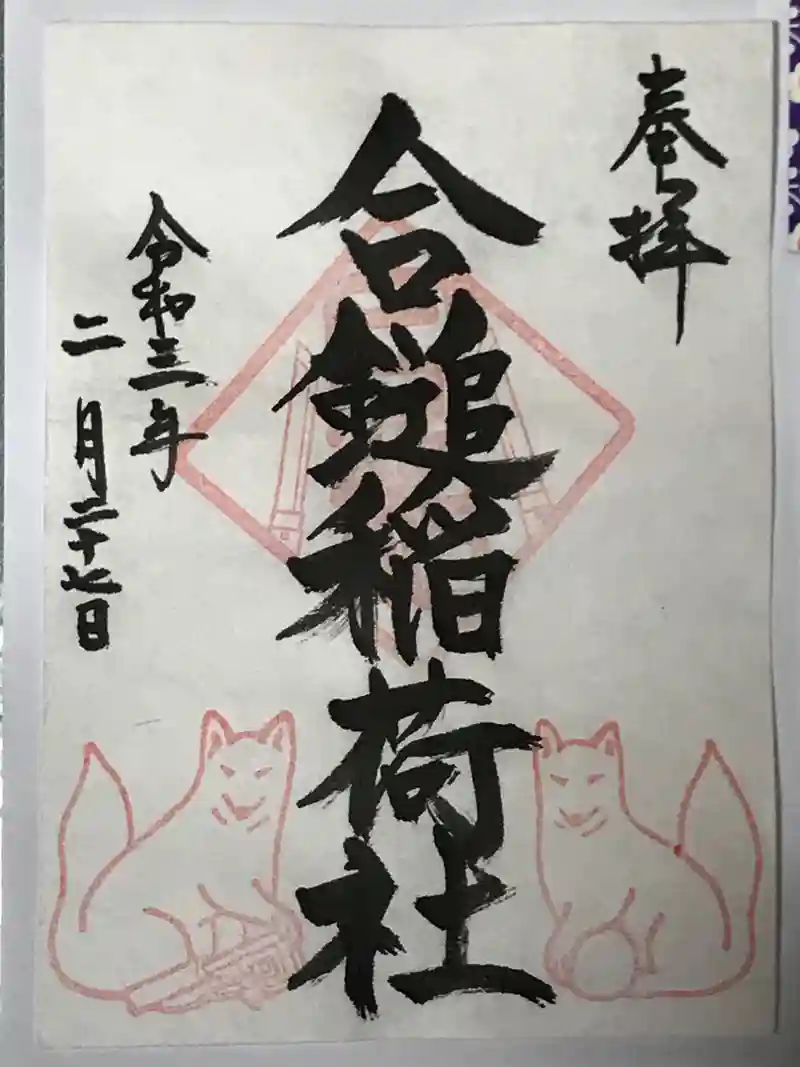 奉拝
合鎚稲荷社
令和三年
二月二十七日